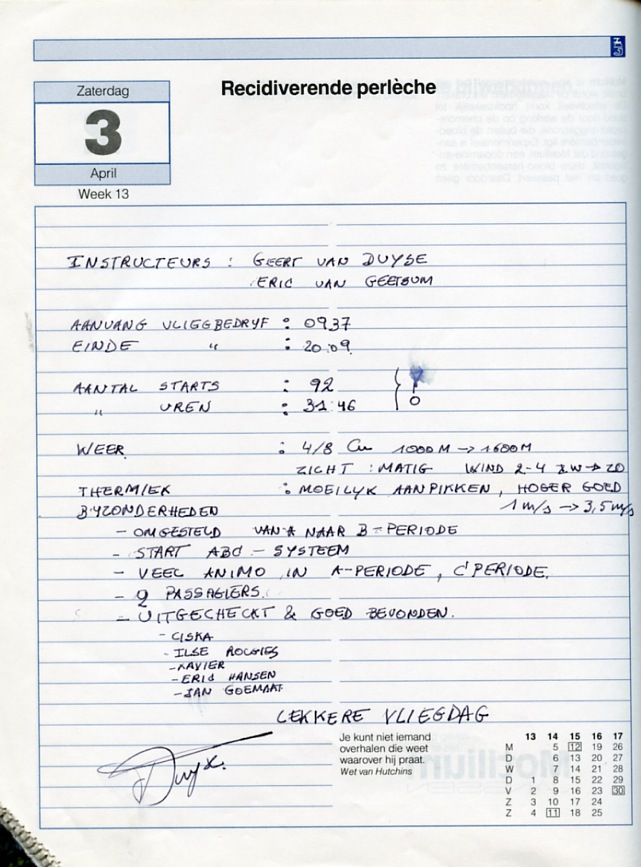 Zaterdag
3
April
Week 13
Recidiverende perlèche
INSTRUCTEURS : GEERT VAN DUYSE
ERIC VAN GEETSUM
AANVANG VLIEGBEDRYF : 0937
EINDE " : 20.09
AANTAL STARTS : 92
" UREN : 31:46
WEER : 4/8 Cu 1000M → 1600M
ZICHT : MATIG WIND 2-4 ZW → ZO
THERMIEK : MOEILYK AANPIKKEN, HOGER GOED
1 m/s → 3,5 m/s
BYZONDERHEDEN
- OMGESTELD VAN A NAAR B-PERIODE
- START ABC - SYSTEEM
- VEEL ANIMO IN A-PERIODE, C'PERIODE.
- 2 PASSAGIERS.
- UITGECHECKT & GOED BEVONDEN.
- CISKA
- ILSE ROGGIES
- XAVIER
- ERIC HANSEN
- JAN GOEMAAT
LEKKERE VLIEGDAG
Je kunt niet iemand
overhalen die weet
waarover hij praat.
Wet van Hutchins
13 14 15 16 17
M 5 12 19 26
D 6 13 20 27
W 7 14 21 28
D 1 8 15 22 29
V 2 9 16 23 30
Z 3 10 17 24
Z 4 11 18 25